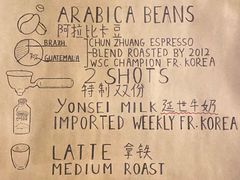 ARABICA BEANS
阿拉比卡豆
BRAZIL
GUATEMALA
CHUN ZHUANG ESPRESSO
BLEND ROASTED BY 2012
WSC CHAMPION FR. KOREA
2 SHOTS
特制双份
YONSEI MILK 延世牛奶
IMPORTED WEEKLY FR. KOREA
LATTE 拿铁
MEDIUM ROAST